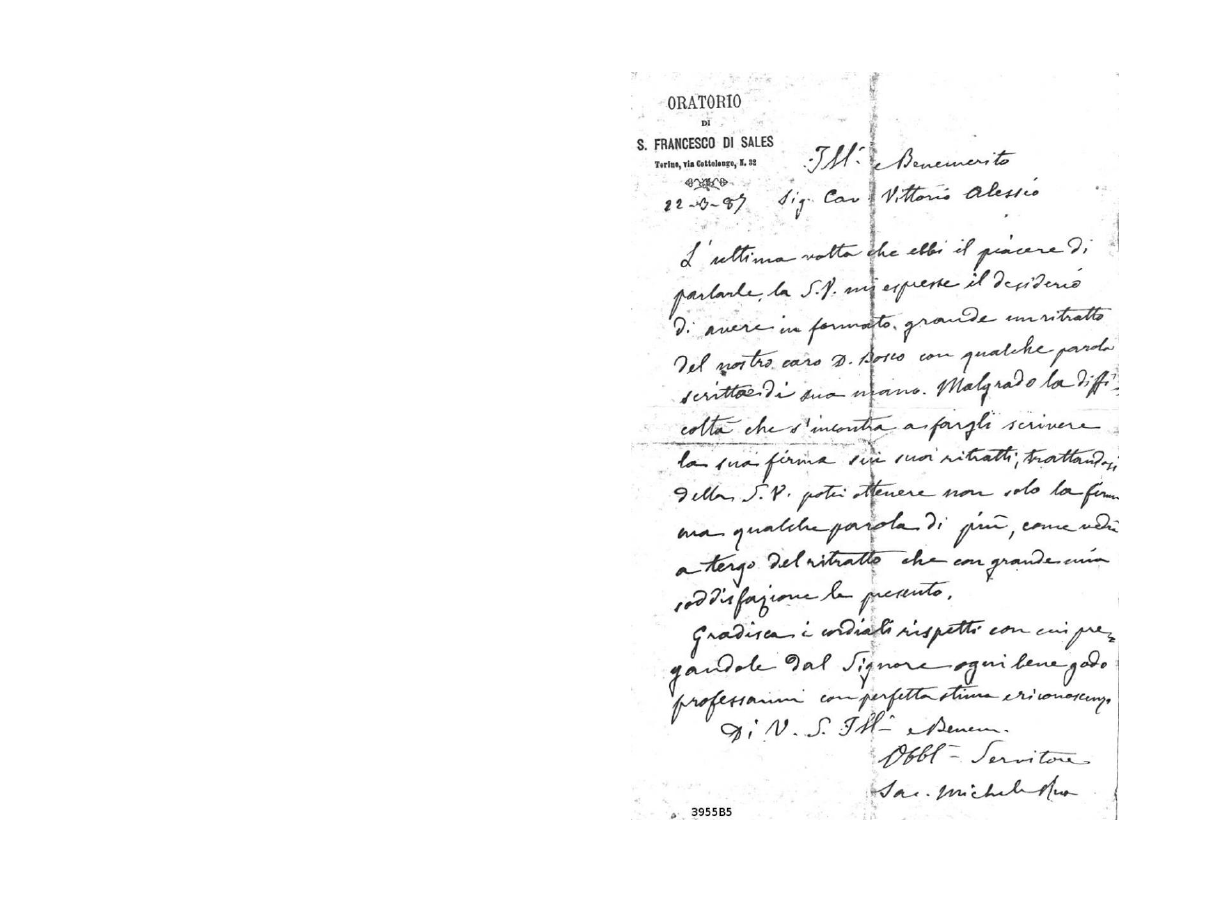 ORATORIO
DI
S. FRANCESCO DI SALES
Torino, via Cottolengo, N. 32
22-3-87
Ill. e Benemerito
Sig. Cav Vittorio Alessio
L'ultima volta che ebbi il piacere di
parlarle, la S.V. mi espresse il desiderio
di avere in formato grande un ritratto
del nostro caro D. Bosco con qualche parola
scritta di sua mano. Malgrado la diffi-
coltà che s'incontra a fargli scrivere
la sua firma sui suoi ritratti, trattandosi
della S.V. potei ottenere non solo la firma
ma qualche parola di più, come vedrà
a tergo del ritratto che con grande mia
soddisfazione le presento.
Gradisca i cordiali rispetti con cui pre-
gandole dal Signore ogni bene godo
professarmi con perfetta stima e riconoscenza
Di V. S. Ill. e Benem.
Obbl. Servitore
Sac. Michele Rua
3955B5